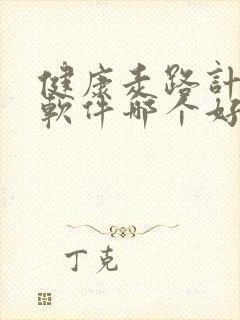 健康走路計
軟件哪个好
丁克